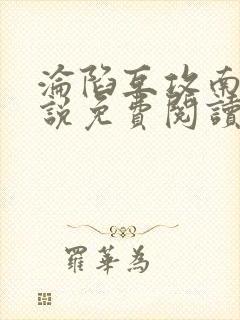 淪陷互攻南
說免費閱讀
羅華為